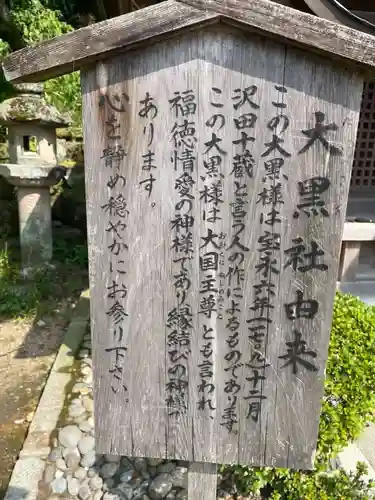 大黒社由来
この大黒様は宝永六年一七〇九十二月
沢田十蔵と言う人の作によるものであります
この大黒様は大国主尊とも言われ
福徳情愛の神様であり縁結びの神様で
あります。
心を静め穏やかにお参り下さい。